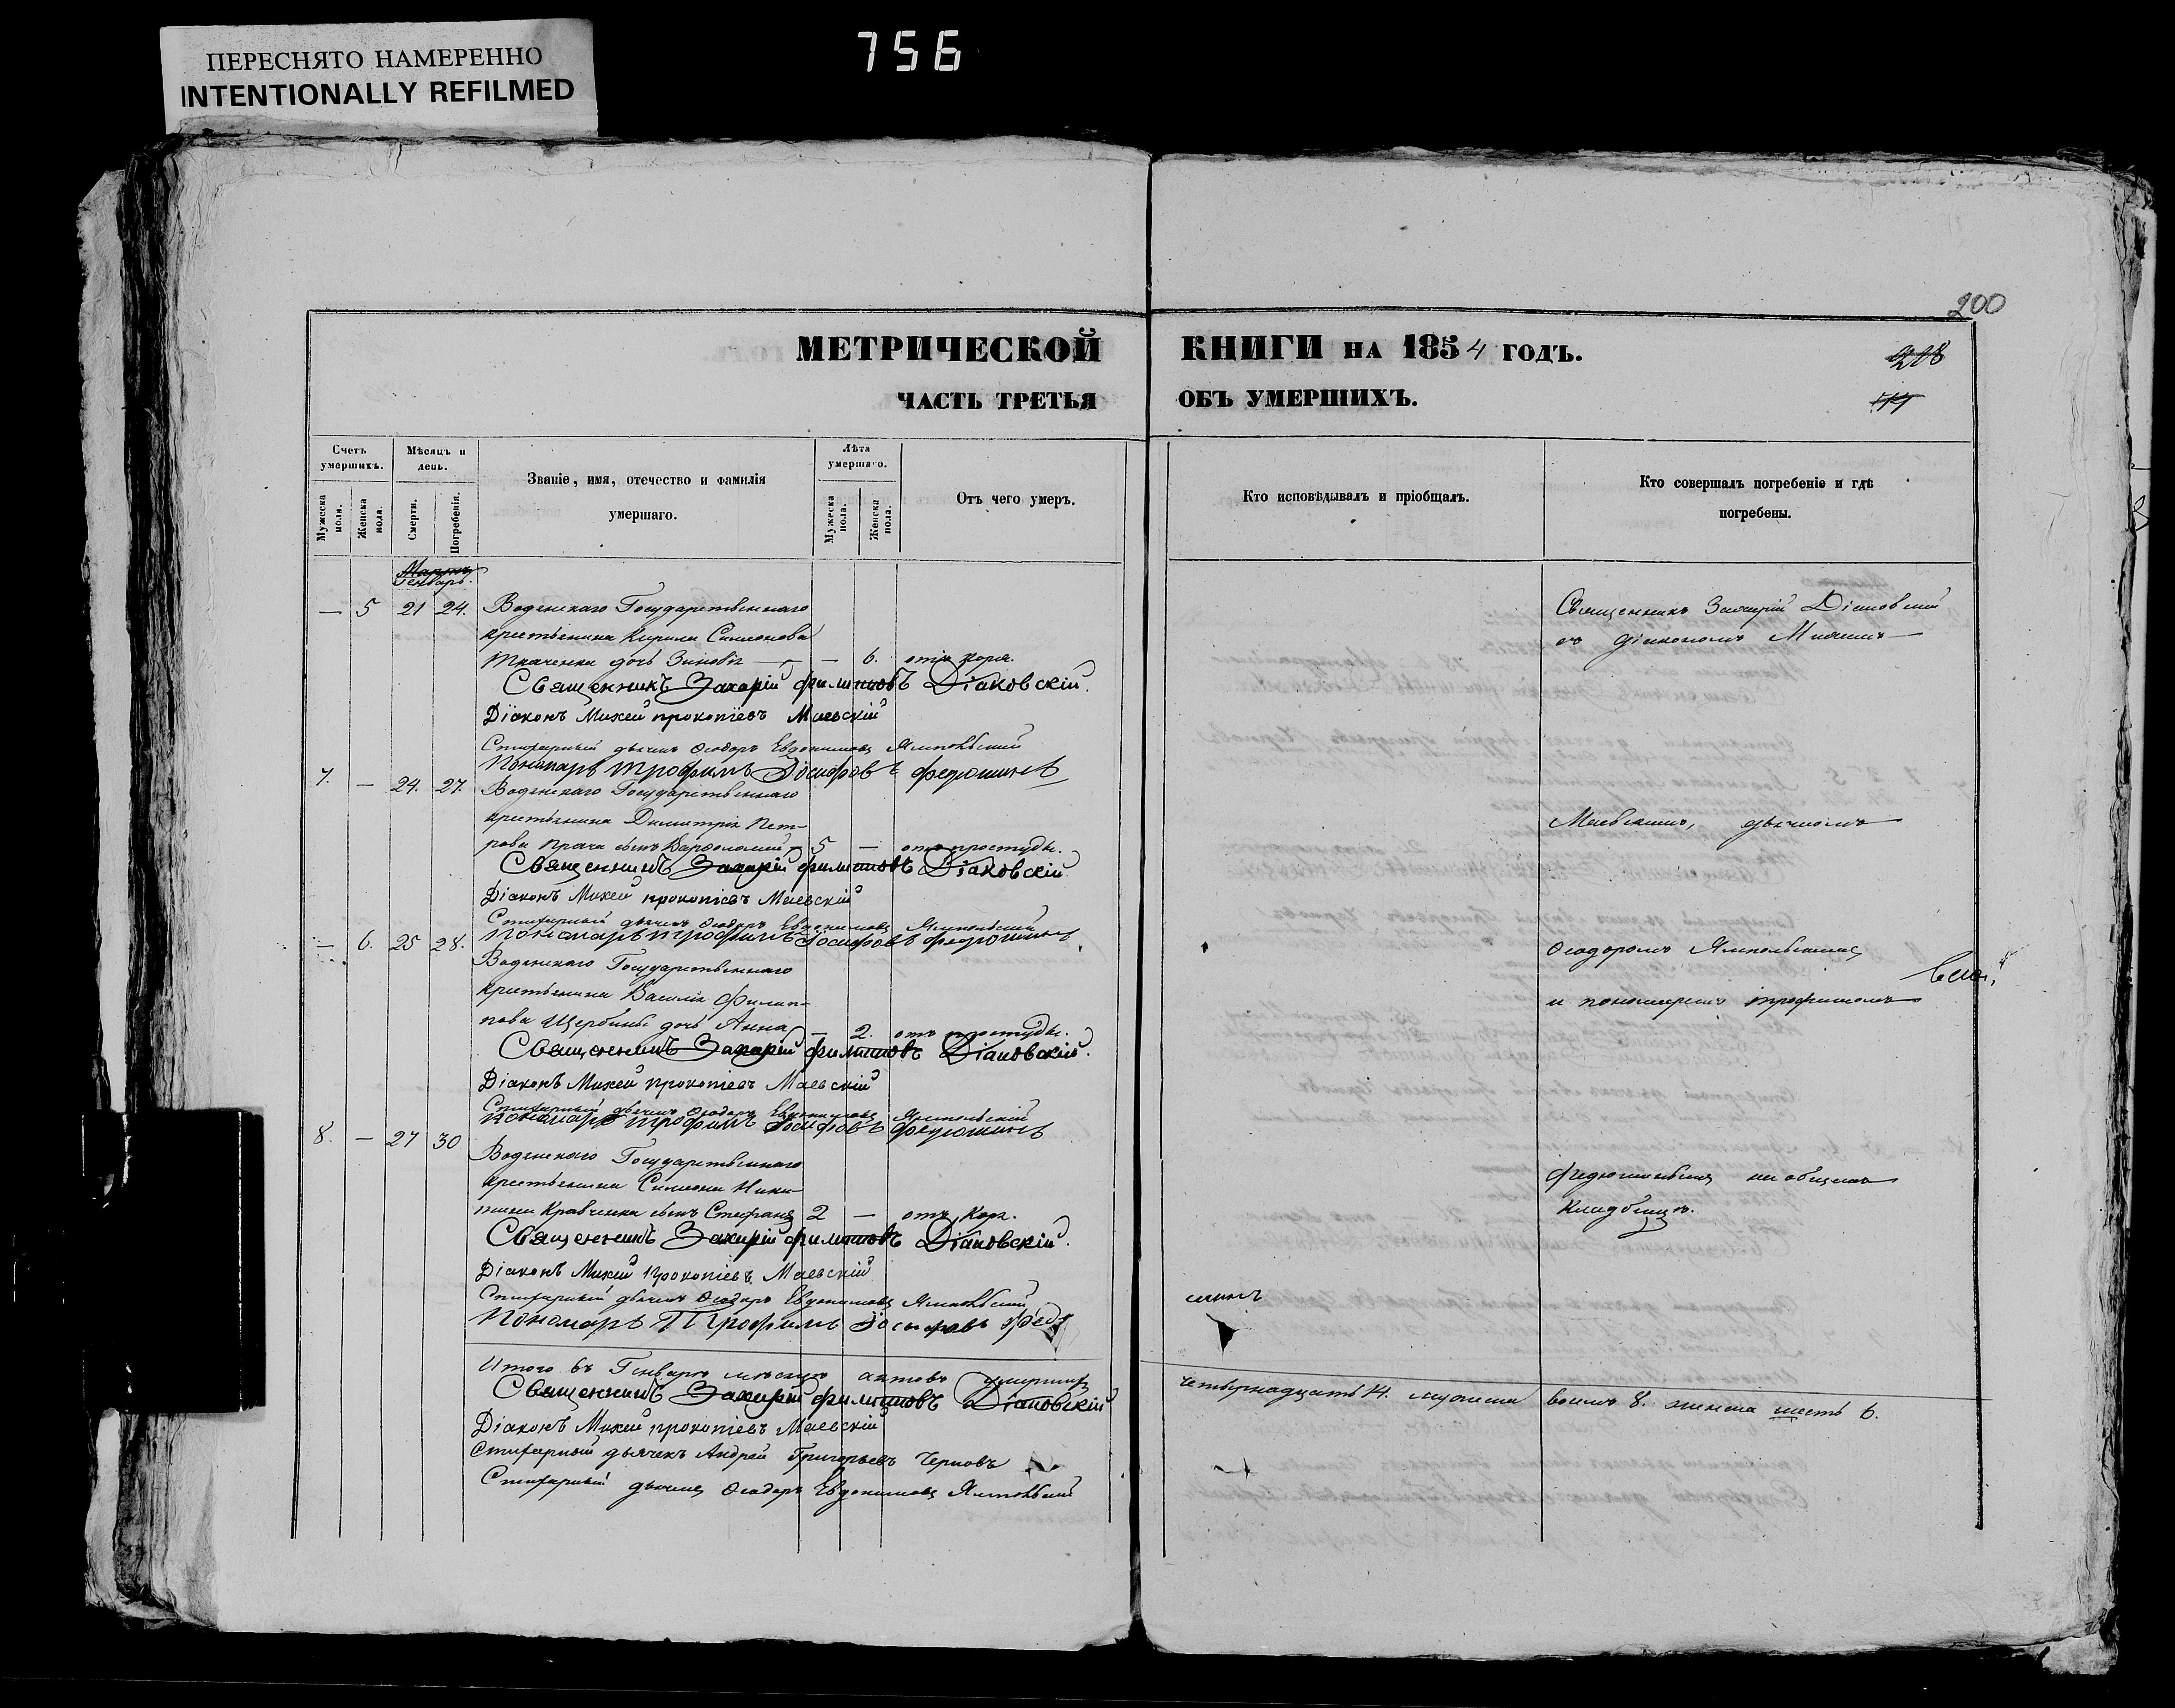 ПЕРЕСНЯТО НАМЕРЕННО
INTENTIONALLY REFILMED
756
200
МЕТРИЧЕСКОЙ КНИГИ НА 1854 ГОДЪ.
ЧАСТЬ ТРЕТЬЯ ОБЪ УМЕРШИХЪ.
Счетъ умершихъ.
Мужеска пола.
Женска пола.
Мѣсяцъ и день.
Смерти.
Погребенія.
Званіе, имя, отечество и фамилія умершаго.
Лѣта умершаго.
Мужеска пола.
Женска пола.
Отъ чего умеръ.
Кто исповѣдывалъ и пріобщалъ.
Кто совершалъ погребеніе и гдѣ погребены.
Генварь.
— 5 21 24. Водянскаго Государственнаго
крестьянина Кирила Симеонова
Ткаченка дочь Зиновія — — 6. отъ коря.
Священникъ Захарій Филиповъ Діаковскій.
Діаконъ Михей Прокопіевъ Маевскій
Стихарный дьячекъ Ѳеодоръ Евдокимовъ Ямпольскій
Пономарь Трофимъ Іосифовъ Федюшинъ
7. — 24. 27. Водянскаго Государственнаго
крестьянина Димитрія Пет-
рова Прача сынъ Варфоломей 5 — отъ простуды.
Священникъ Захарій Филиповъ Діаковскій
Діаконъ Михей Прокопіевъ Маевскій
Стихарный дьячекъ Ѳеодоръ Евдокимовъ Ямпольскій
Пономарь Трофимъ Іосифовъ Федюшинъ
— 6. 25 28. Водянскаго Государственнаго
крестьянина Василія Филип-
пова Щербины дочь Анна — 2. отъ простуды.
Священникъ Захарій Филиповъ Діаковскій.
Діаконъ Михей Прокопіевъ Маевскій
Стихарный дьячекъ Ѳеодоръ Евдокимовъ Ямпольскій
Пономарь Трофимъ Іосифовъ Федюшинъ
8. — 27 30 Водянскаго Государственнаго
крестьянина Симеона Ники-
тина Кравченка сынъ Стефанъ 2 — отъ коря.
Священникъ Захарій Филиповъ Діаковскій.
Діаконъ Михей Прокопіевъ Маевскій
Стихарный дьячекъ Ѳеодоръ Евдокимовъ Ямпольскій
Пономарь Трофимъ Іосифовъ Федю
шинъ
Священникъ Захарій Діаковскій
съ діакономъ Михеемъ
Маевскимъ, дьячкомъ
Ѳеодоромъ Ямпольскимъ
и пономаремъ Трофимомъ
Федюшинымъ на общемъ
кладбищѣ.
Итого въ Генварѣ мѣсяцѣ актовъ умершихъ четырнадцать 14. мужеска восемь 8. женска шесть 6.
Священникъ Захарій Филиповъ Діаковскій
Діаконъ Михей Прокопіевъ Маевскій
Стихарный дьячекъ Андрей Григорьевъ Черновъ
Стихарный дьячекъ Ѳеодоръ Евдокимовъ Ямпольскій